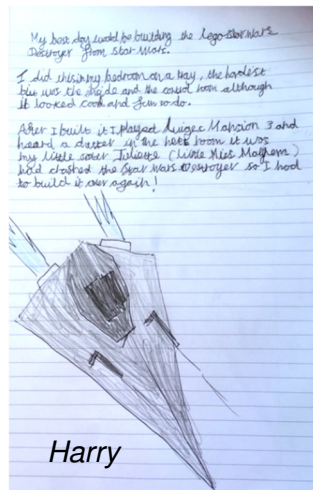 My best day would be building the lego Star Wars
Destroyer from Star Wars.
I did this in my bedroom on a tray, the hardest
bit was the inside and the control room although
it looked cool and fun to do.
After I built it I played Luigi Mansion 3 and
heard a clatter in the next room it was
my little sister Juliette (Little Miss Mayhem)
had crashed the Star Wars Destroyer so I had
to build it over again!
Harry